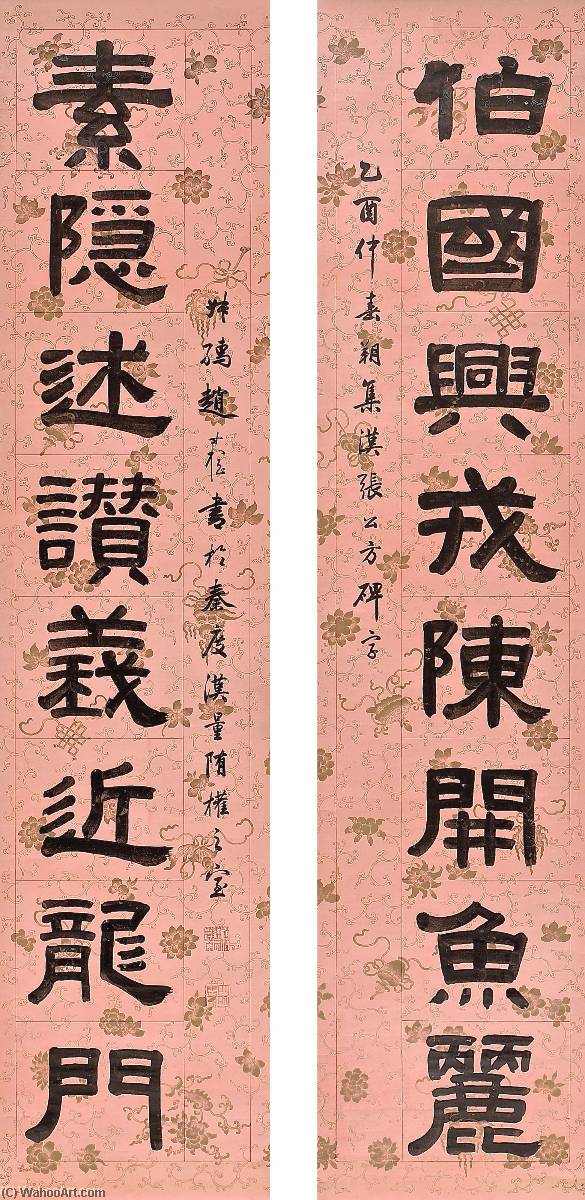 伯國興戎陳開魚麗
乙酉仲春朔集漢張公方碑字
素隱述讚義近龍門
叔孺趙書於秦度漢量隋權之室
(C) WahooArt.com